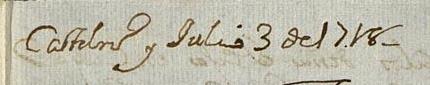 Castelrs y Julio 3 de 1718